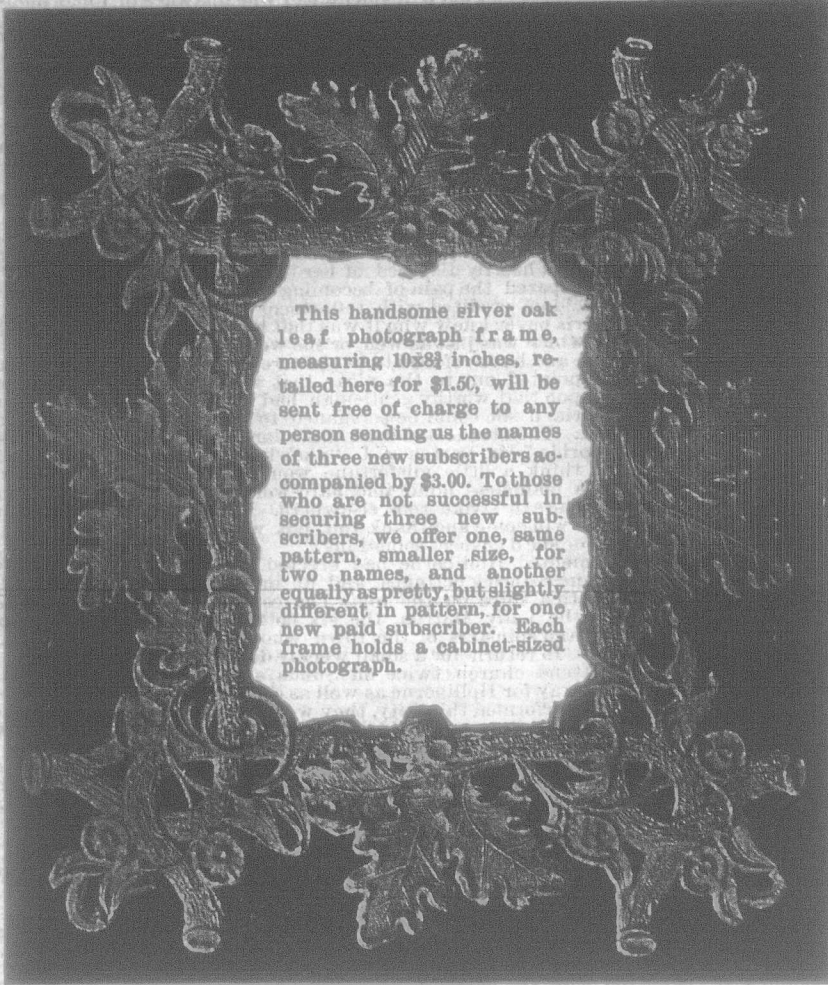 This handsome silver oak
leaf photograph frame,
measuring 10x8¾ inches, re-
tailed here for $1.50, will be
sent free of charge to any
person sending us the names
of three new subscribers ac-
companied by $3.00. To those
who are not successful in
securing three new sub-
scribers, we offer one, same
pattern, smaller size, for
two names, and another
equally as pretty, but slightly
different in pattern, for one
new paid subscriber. Each
frame holds a cabinet-sized
photograph.